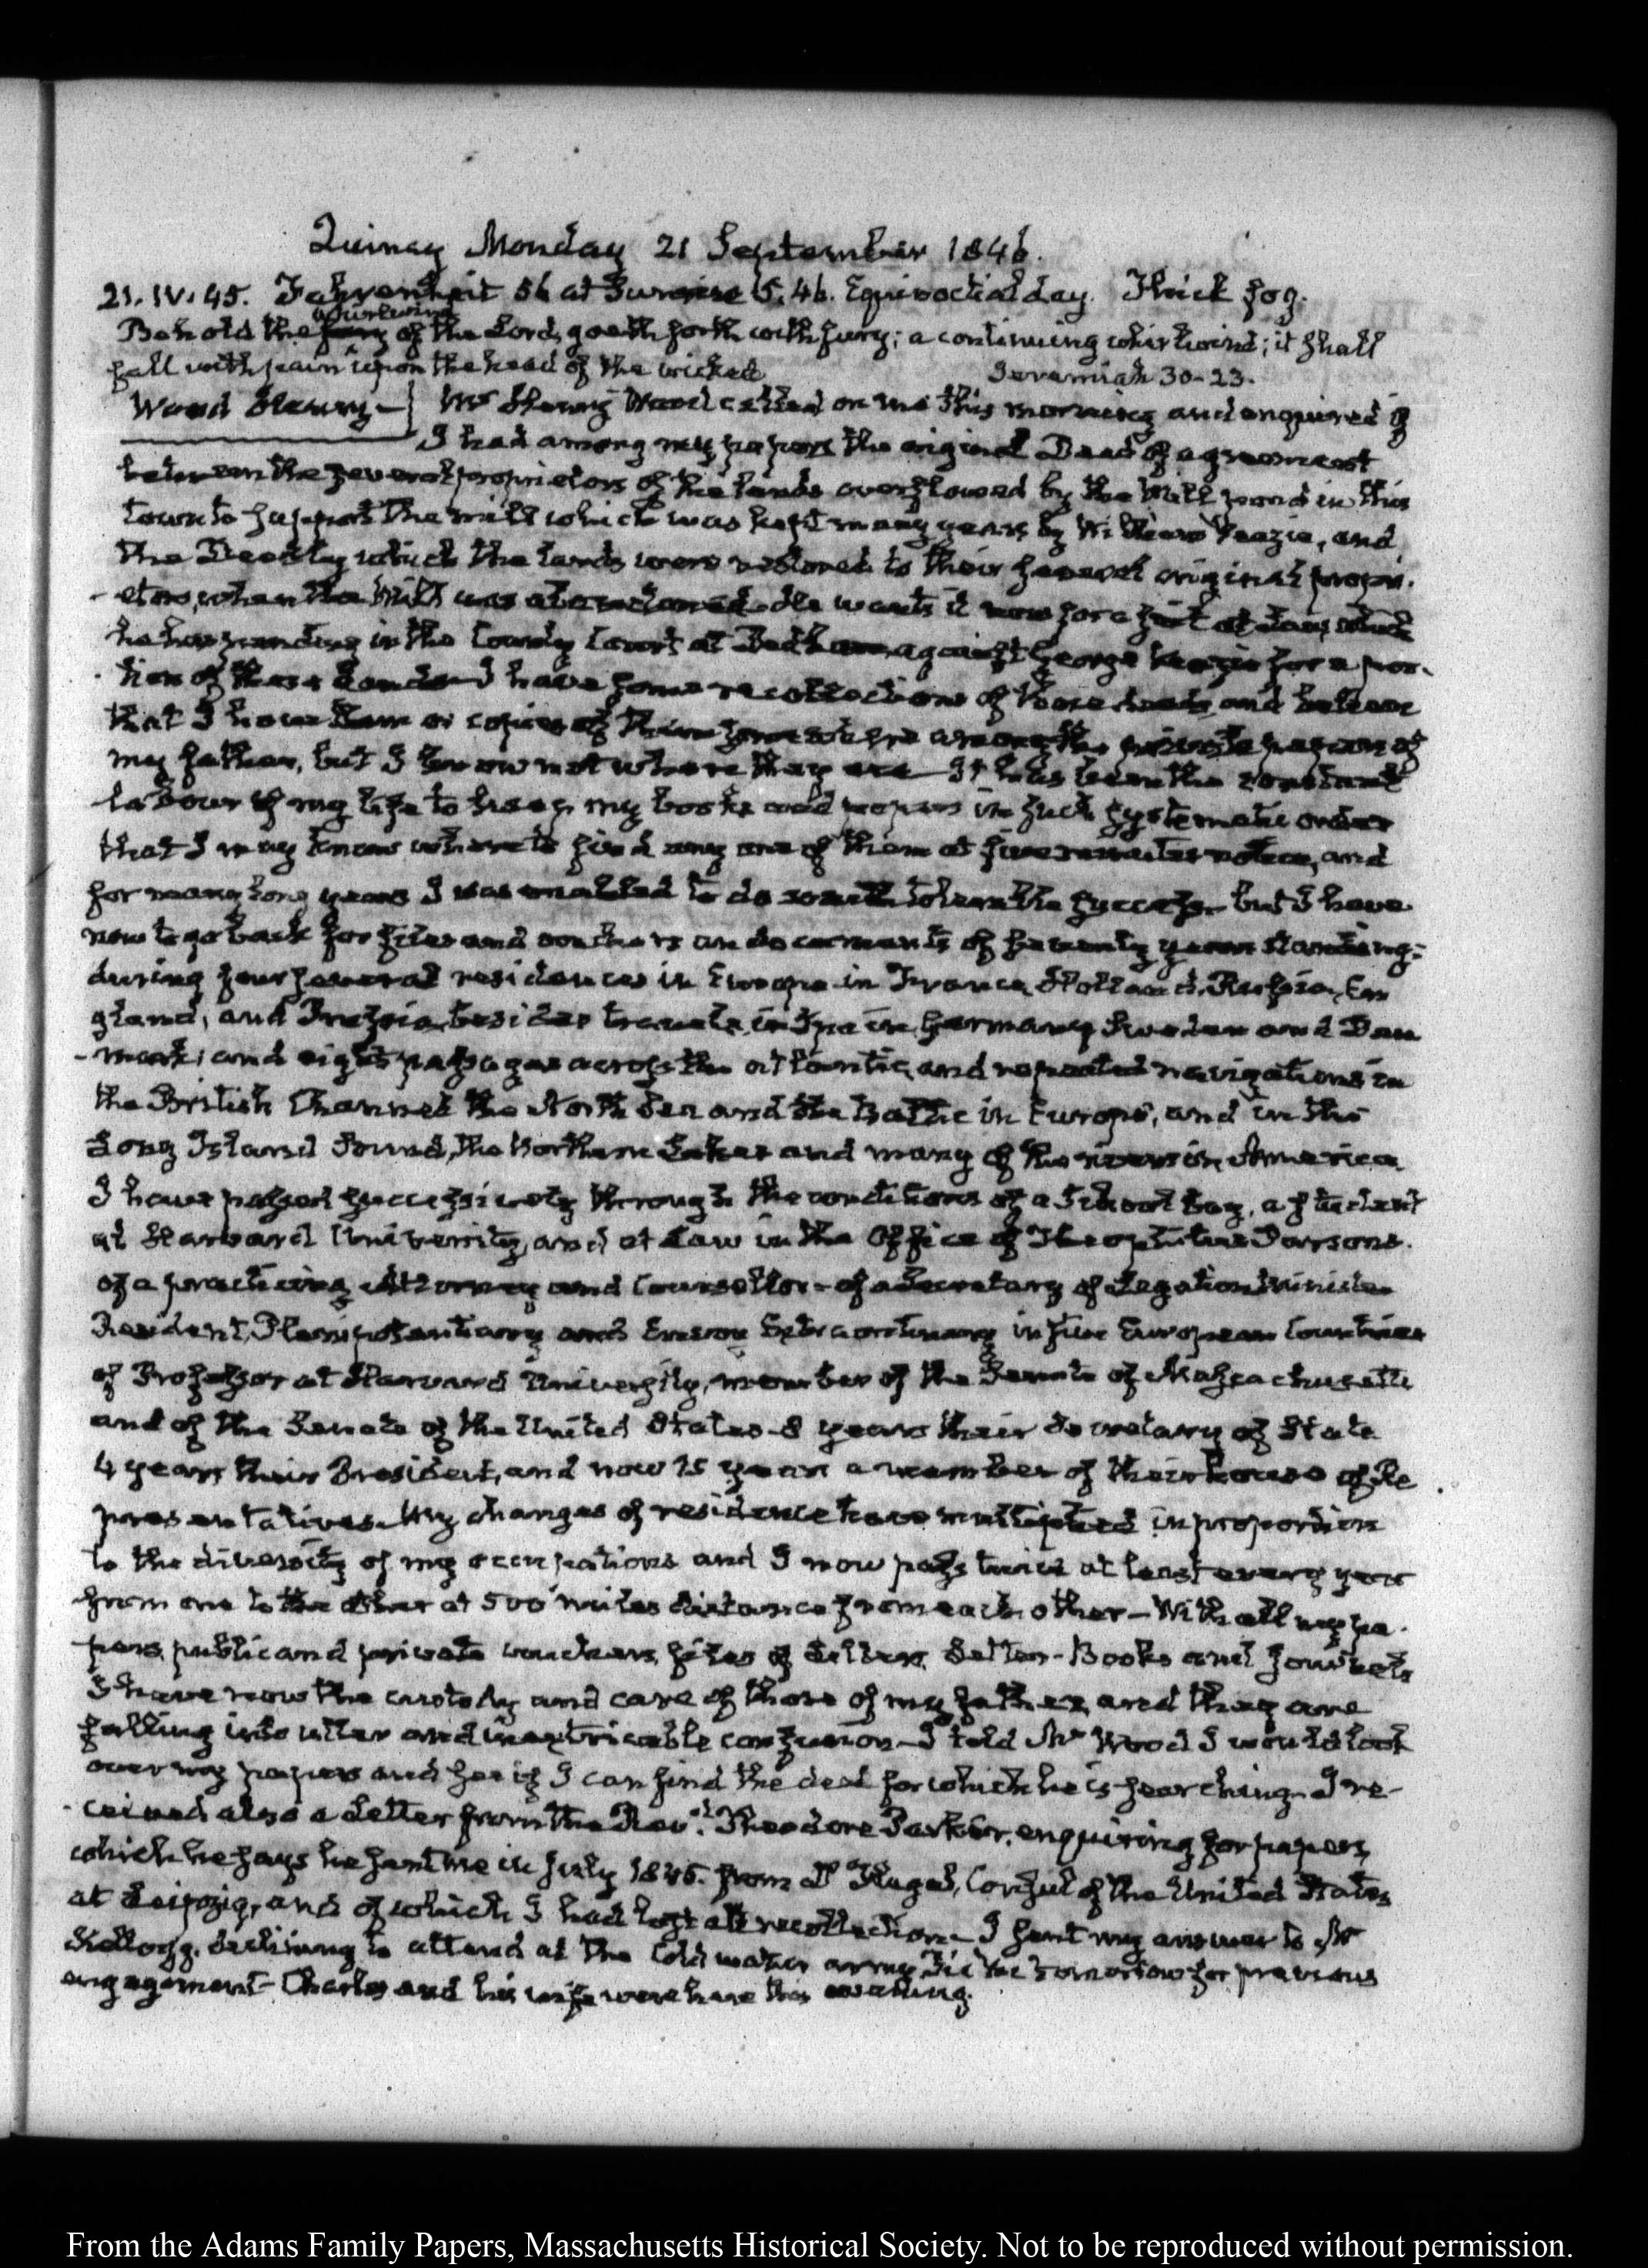 Quincy Monday 21 September 1846.
21. IV. 45. Fahrenheit 56 at Sunrise 5.46. Equinoctial day. Thick fog.
whirlwind
Behold the fury of the Lord, goeth forth with fury; a continuing whirlwind; it shall
fall with pain upon the head of the wicked Jeremiah 30-23.
Wood Henry— Mr Henry Wood called on me this morning and enquired if
I had among my papers the original Deed of agreement
between the several proprietors of the lands overflowed by the Mill pond in this
town to support the mill which was kept many years by William Veazie, and
the Deed by which the lands were restored to their several original propri-
-etors, when the Mill was abandoned. He wants it now for a suit at Law which
he has pending in the County Court at Dedham against George Veazie for a por-
tion of these Lands—I have some recollections of those deeds, and believe
that I have them or copies of them somewhere among the private papers of
my father, but I know not where they are—It has been the constant
labour of my life to keep my books and papers in such systematic order
that I may know where to find any one of them at five minutes notice, and
for many long years I was enabled to do so with tolerable success—but I have
now to go back for files and vouchers and documents of seventy years standing:
during four several residences in Europe in France, Holland, Russia, En
gland, and Prussia, besides travels in Spain, Germany Sweden and Den
-mark; and eight passages across the atlantic, and repeated navigations in
the British Channel the North Sea and the Baltic in Europe, and in the
Long Island Sound, the Northern Lakes and many of the rivers in America
I have passed successively through the conditions of a School boy, a student
at Harvard University, and at Law in the Office of Theophilus Parsons.
of a practicing Attorney and Counsellor—of a Secretary of Legation Minister
Resident, Plenipotentiary and Envoy Extraordinary in five European Countries
of Professor at Harvard University, member of the Senate of Massachusetts
and of the Senate of the United States—8 years their Secretary of State
4 years their President, and now 15 years a member of their House of Re
presentatives. My changes of residence have multiplied in proportion
to the diversity of my occupations and I now pass twice at least every year
from one to the other at 500 miles distance from each other—With all my pa-
pers, public and private vouchers, files of Letters, Letter-Books and journals
I have now the custody and care of those of my father, and they are
falling into utter and inextricable confusion—I told Mr Wood I would look
over my papers and see if I can find the deed for which he is searching—I re-
-ceived also a Letter from the Revd. Theodore Parker, enquiring for papers
which he says he sent me in July 1845. from Dr Flugel, Consul of the United States
at Leipzig, and of which I had lost all recollection—I sent my answer to Mr
Kellogg, declining to attend at the Cold water army tomorrow for previous
engagement—Charles and his wife were here this evening.
From the Adams Family Papers, Massachusetts Historical Society. Not to be reproduced without permission.